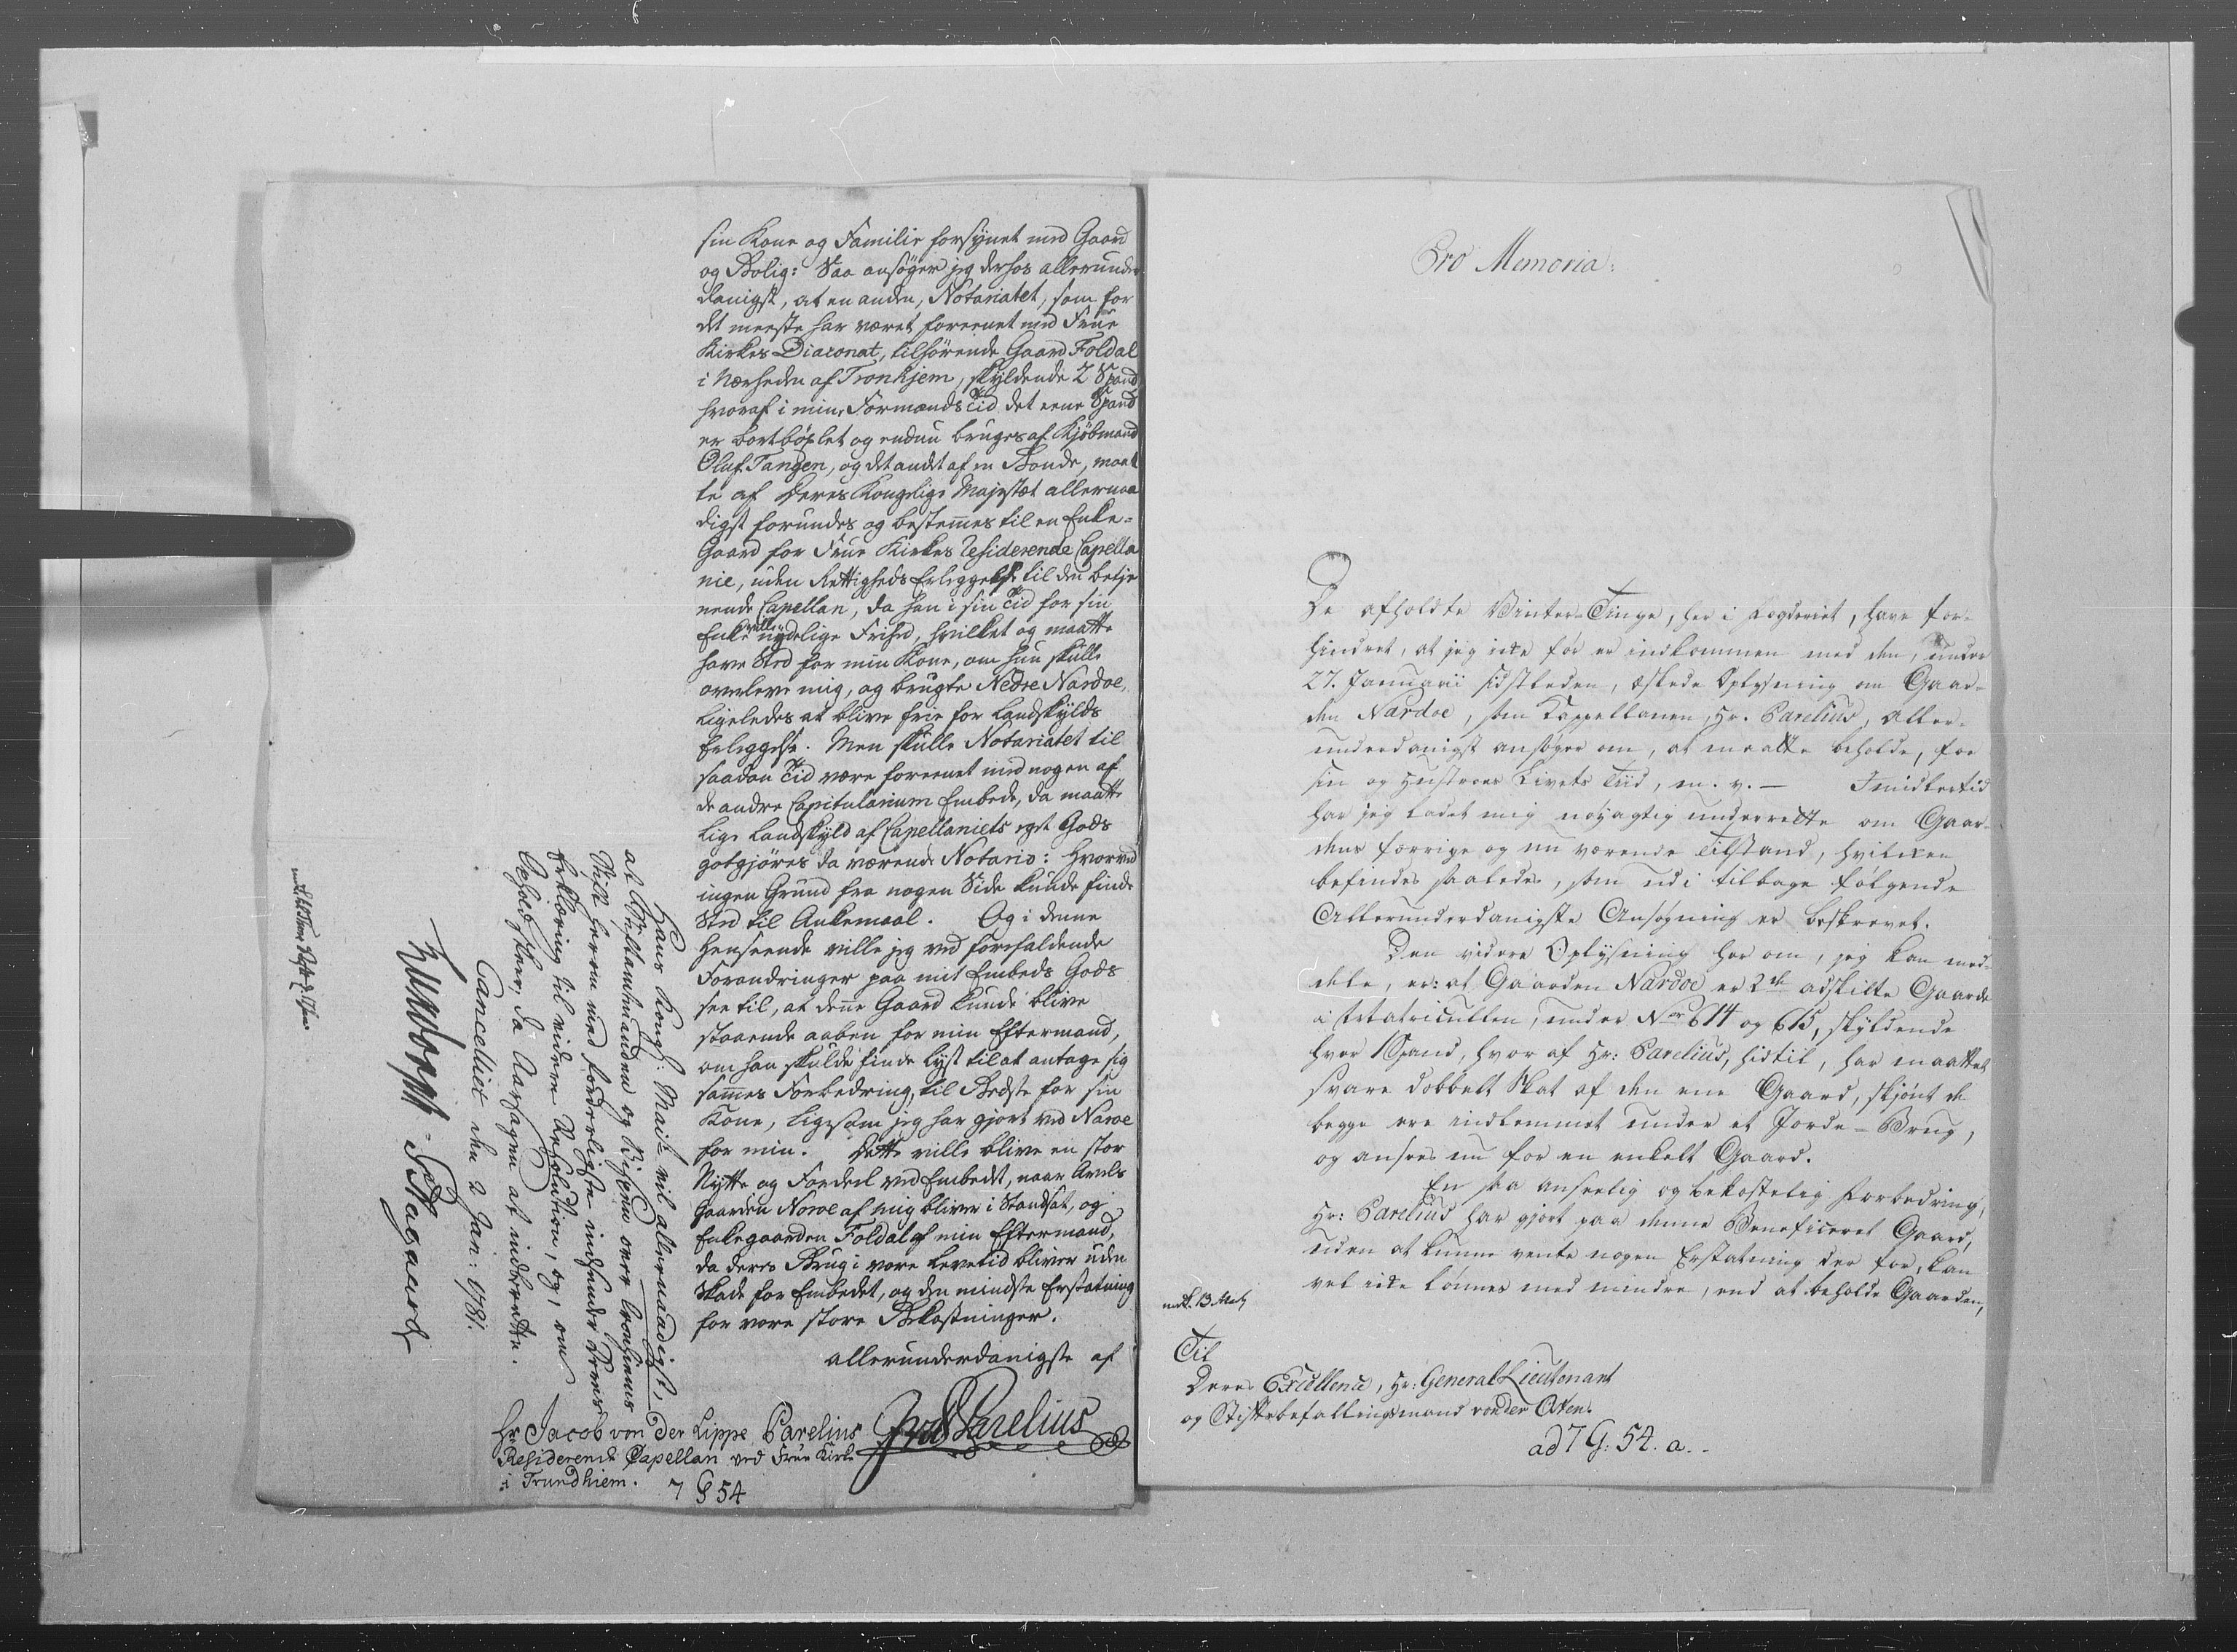 sin Kone og Familie forsynet med Gaard
og Bolig: Saa ansøger jeg derhos allerunder
danigst, at en anden, Notariatet, som for
det meeste har været foreenet med Frue
Kirkes Diaconat, tilhørende Gaard Foldal
i Nærheden af Tronhjem, skyldende 2 Spand
hvoraf i min Formands Tid det eene Spand
er bortbøxlet og endnu bruges af Kjøbmand
Oluf Tangen, og det andet af en Bonde, maat
te af Deres Kongelige Majestæt allernaa
digst forundes og bestemmes til en Enke-
Gaard for Frue Kirkes Residerende Capella
nie, uden Rettigheds Erleggelse til den betje
nende Capellan, da han i sin Tid for sin
Enke ville nyde lige Frihed, hvilket og maatte
have Sted for min Kone, om hun skulle
overleve mig, og brugte Nedre Nardoe,
ligeledes at blive frie for Landskylds
Erleggelse. Men skulle Notariatet til
saadan Tid være foreenet med nogen af
de andre Capitularium Embede, da maatte
lige Landskyld af Capellaniets eget Gods
gotgjøres da værende Notario: hvorved
ingen Grund fra nogen Side kunde finde
Sted til Ankemaal. Og i denne
Henseende ville jeg ved forefaldende
Forandringer paa mit Embeds Gods
see til, at denne Gaard kunde blive
staaende aaben for min Eftermand,
om han skulde finde Lyst til at antage sig
sammes Forbedring, til Bedste for sin
Kone, ligesom jeg har gjort ved Naroe
for min. Dette ville blive en stor
Nytte og Fordeel ved Embedet, naar Avels
Gaarden Naroe af mig bliver i Standsat, og
Enkegaarden Foldal af min Eftermand,
da deres Brug i vore Levetid bliver uden
Skade for Embedet, og den mindste Erstatning
for vore store Bekostninger.
allerunderdanigste af
JvdLParelius
Hr Jacob von Der Lippe Parelius
Residerende Capellan ved Frue Kirke
i Trundhiem.
7 G 54
Hans Kongl: Mait vil allernaadigst,
at Stiftamtmanden og Bispen over Tronhiems
Stift herom med forderligste indsender Deres
Erklæring til videre Resolution, og, om
Ophold skeer, da Aarsagen at indberette.
Cancelliet den 2 Jan: 1781.
Luxdorph Stagaard
Pro Memoria:
De afholdte Vinter-Tinge, her i Fogderiet, have for-
hindret, at jeg ikke før er indkommen med den, under
27. Januarii sidstleden, æskede Oplysning om Gaar-
den Nardoe, som Cappellanen, Hr. Parelius, aller-
underdanigst ansøger om, at maatte beholde, for
sin og Hustroes Livets Tiid, m. v. — Imidlertid
har jeg ladet mig nøyagtig underrette om Gaar-
dens forrige og nu værende Tilstand, hvilken
befindes saaledes, som udi tilbage følgende
Allerunderdanigste Ansøgning er beskrevet.
Den videre Oplysning her om, jeg kan med-
dele, er: at Gaarden Nardoe er 2de adskilte Gaarde
i Matriculen, under No 614 og 615, skyldende
hver 1 Spand, hvor af Hr: Parelius, hidtil, har maattet
svare dobbelt Skat af den ene Gaard, skjønt de
begge ere indlemmet under et Jorde-Brug,
og ansees nu for en enkelt Gaard.
En saa anseelig og bekostelig Forbedring,
Hr: Parelius har gjort paa denne Beneficeret Gaard,
uden at kunne vente nogen Erstatning der for, kan
vel ikke lønnes med mindre, end at beholde Gaarden,
Til
Deres Excellence, Hr: General Lieutenant
og Stiftsbefallingsmand von der Osten.
ad 7 G: 54. a.